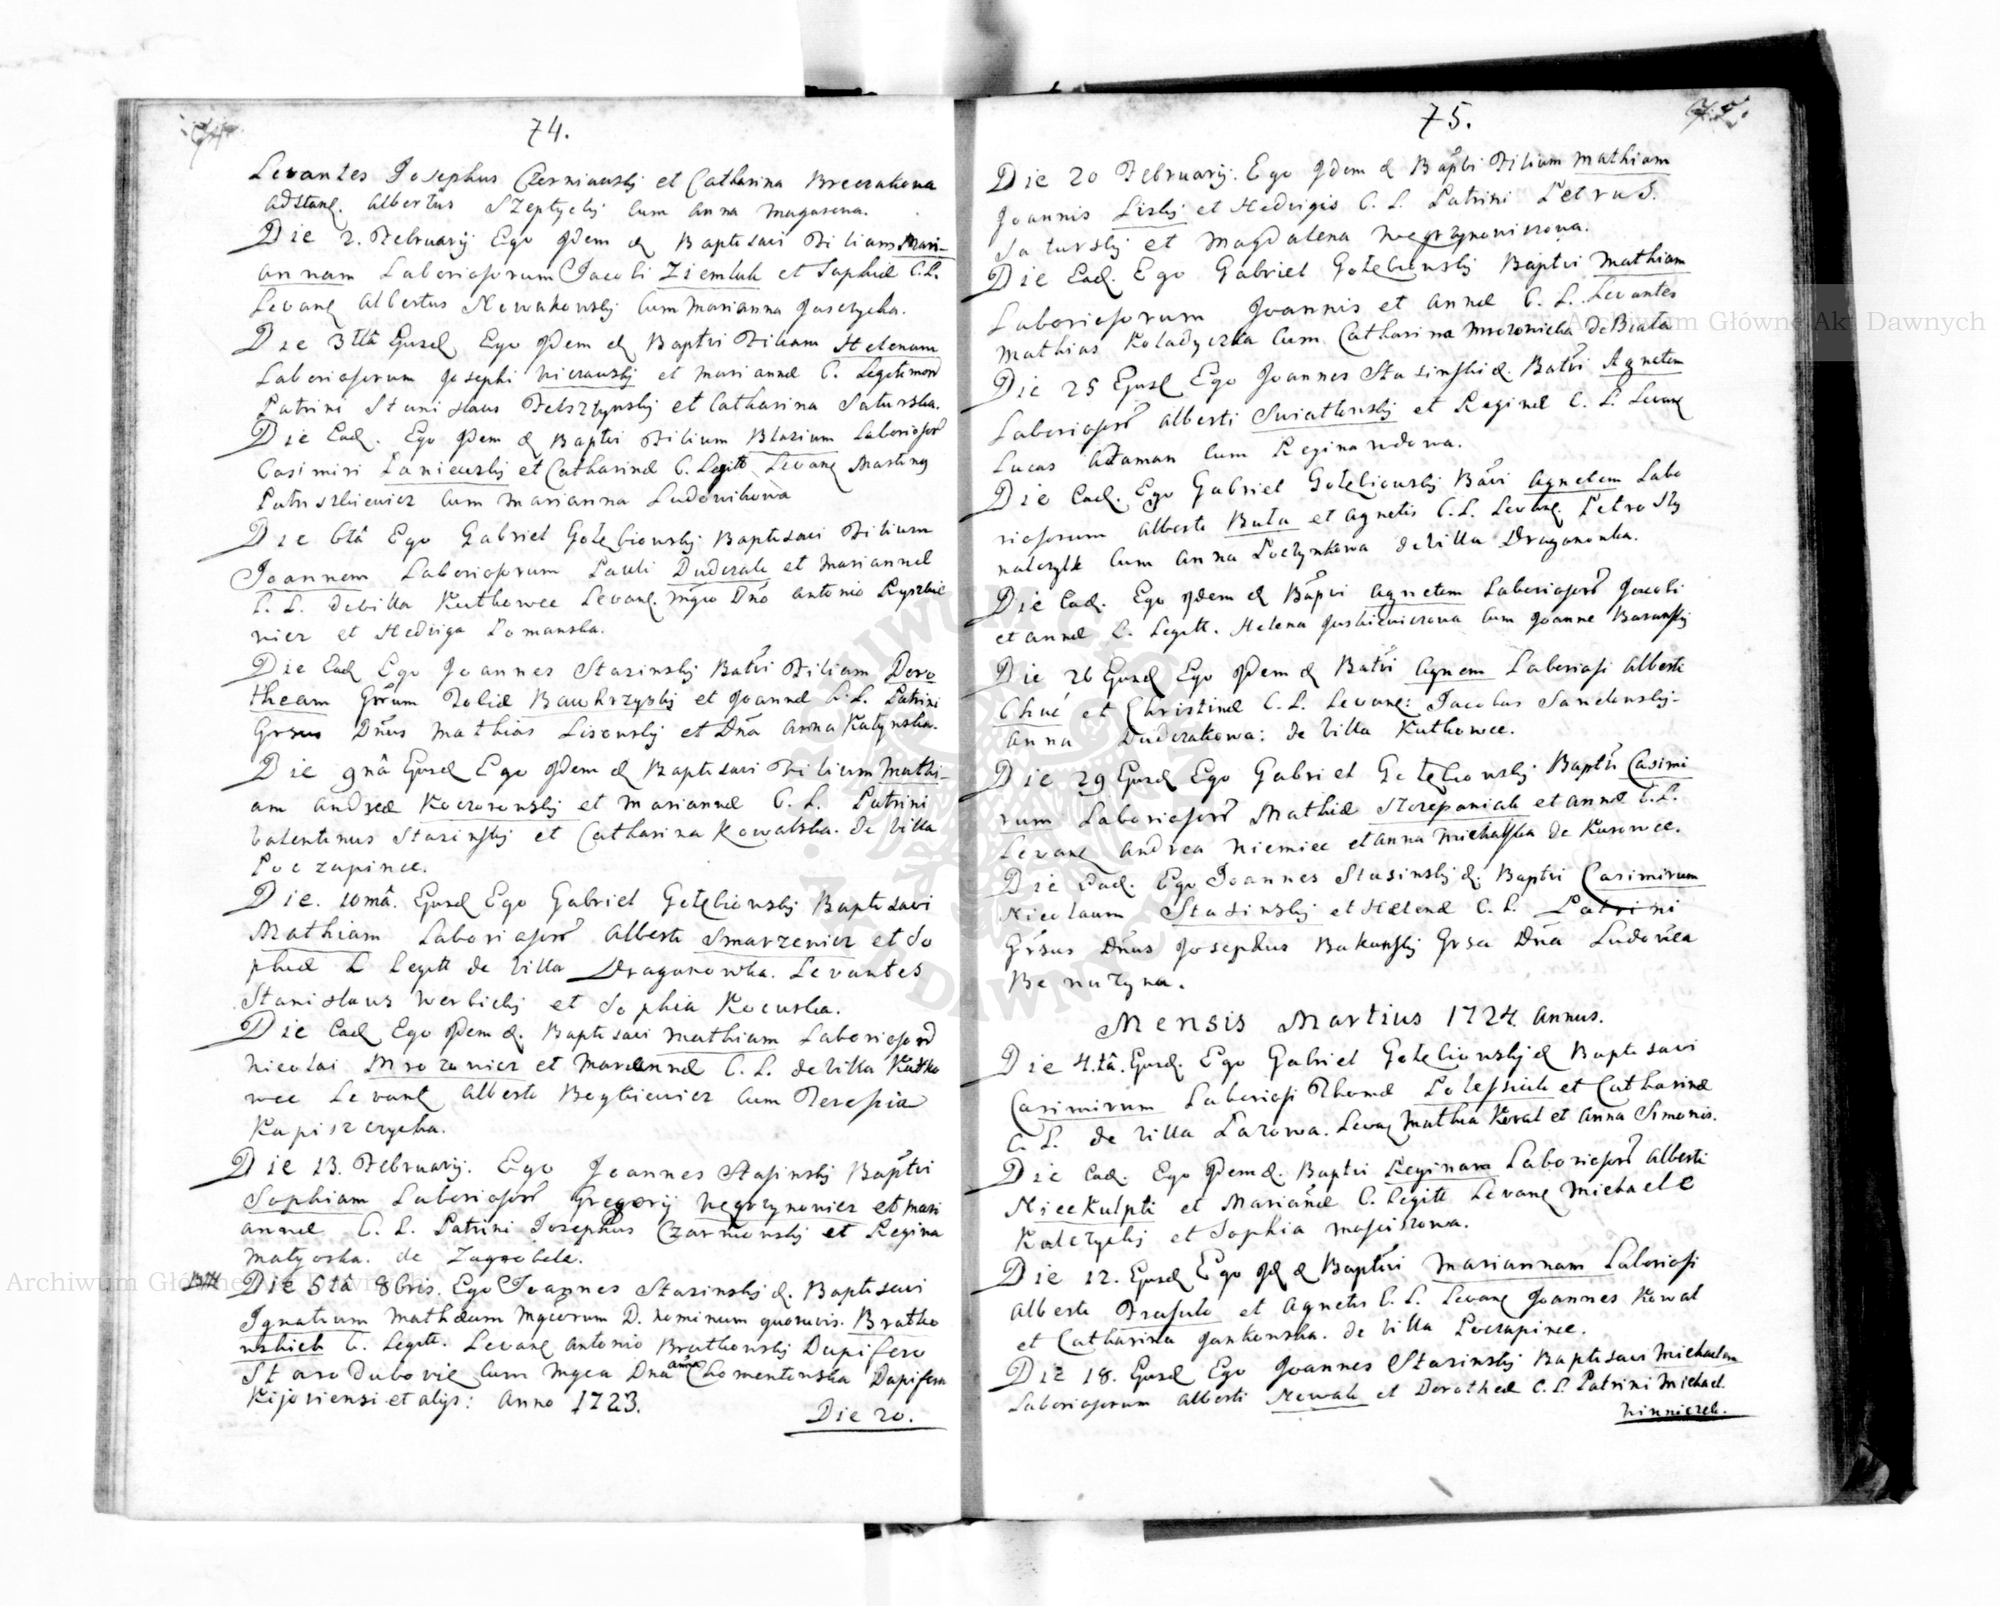 74.
Levantes Josephus Czerniawskj et Catharina Breczakowa
adstanē. Albertus Szeptyckj cum Anna Magasowa.
Die 2. Februarij Ego Idem q Baptisavi Filiam Mari-
annam Laboriosorum Jacobi Ziemluk et Sophiæ C.L.
Levanē Albertus Nowakowskj cum Marianna
Die 3tiâ Ejusd Ego Idem q Baptvi Filiam Helenam
Laboriosorum Josephi et Mariannæ C. Legitimor
Patrini Stanislaus Felsztynskj et Catharina Saturska.
Die Ead. Ego Idem q Baptvi Filium Blasium Laboriosor
Casimiri et Catharinæ C. Legitt Levanē Martinus
Patruszkiewicz cum Marianna Ludovikowa
Die 6tâ Ego Gabriel Gołębiowskj Baptisavi Filium
Joannem Laboriosorum Pauli Duderak et Mariannæ
C. L. de Villa Kutkowce Levanē. Mgco Dno Antonio Ryszkie
wicz et Hedviga Romanska.
Die Ead Ego Joannes Stasinskj Batvi Filiam Doro
theam Grum et Joannæ C. L. Patrini
Grsus Dnus Mathias Lisowskj et Dna Anna Katynska.
Die 9nâ Ejusd Ego Idem q Baptisavi Filium Mathi-
am Andreæ Koczorowskj et Mariannæ C. L. Patrini
Valentinus Stasinskj et Catharina Kowalska. de Villa
Poczapince.
Die. 10mâ. Ejusd Ego Gabriel Gołębiowskj Baptisavi
Mathiam Laboriosor Alberti Smarzewicz et So
phiæ C Legitt de Villa Draganowka. Levantes
Stanislaus Werbickj et Sophia Kocuska.
Die Ead Ego Idem q. Baptisavi Mathiam Laboriosor
Nicolai Mrozowicz et Mariannæ C. L. de Villa Kutko
wce Levanē Alberto cum Teresia
Kapiszczycka.
Die 13. Februarij. Ego Joannes Stasinskj Baptvi
Sophiam Laboriosor Gregorij Węgrzynowicz et Mari
annæ C. L. Patrini Josephus Czarnowskj et Regina
Matyoska. de Zagrobela.
Die 5tâ 8bris. Ego Joannes Stasinskj q. Baptisavi
Ignatium Mathæum Mgcorum D. Nominum quorūvis. Bratko
wskich C. Legitt. Levanē Antonio Bratkowskj Dapifero
Starodubovie cum Mgca Dna Anna Chomentowska Dapifera
Kijoviensi et alijs: Anno 1723.
Die 20.
75.
Die 20 Februarij. Ego Idem q Baptvi Filium Mathiam
Joannis Liskj et Hedvigis C. L. Patrini Petrus.
Saturskj et Magdalena Węgrzynowiczowa.
Die Ead. Ego Gabriel Gołębiowskj Baptvi Mathiam
Laboriosorum Joannis et Annæ C. L. Levantes
Mathias Koladyczka cum Catharina Mrozowicka de Biała
Die 25 Ejusd Ego Joannes Stasinski q. Batvi Agnetem
Laboriosor Alberti Swiatlowskj et Reginæ C. L. Levanē
Lucas Adaman cum Regina Wdowa.
Die Ead. Ego Gabriel Gołębiowskj Bavi Agnetem Labo
riosorum Alberti Buła et Agnetis C.L. Levanē. Petro
cum Anna de Villa Draganowka.
Die Ead. Ego Idem q Bapvi Agnetem Laboriosor Jacobi
et Annæ C. Legitt. Helena Juskiewiczowa cum Joanne Baranskj
Die 26 Ejusd Ego Idem q Batvi Agnem Laboriosi Alberti
et Christinæ C. L. Levanē: Jacobus Sandowskj.
Anna Duderakowa: de Villa Kutkowce.
Die 29 Ejusd Ego Gabriel Gołębiowskj Baptvi Casimi
rum Laboriosor Mathiæ Szczepaniak et Annæ C.L.
Levanē Andrea Niemiec et Anna Michalska de Kurowce.
Die Ead. Ego Joannes Stasinskj q. Baptvi Casimirum
Nicolaum Stasinskj et Helenæ C. L. Patrini
Grsus Dnus Josephus Bakowskj Grsa Dna Ludovica
Mensis Martius 1724 Annus.
Die 4.tâ. Ejusd. Ego Gabriel Gołębiowskj q Baptisavi
Casimirum Laboriosi Thomæ et Catharinæ
C. L. de Villa Łazowa. Levaē Mathia Koval et Anna Simonis.
Die Ead. Ego Idem q. Baptvi Reginam Laboriosor Alberti
et Mariañæ C. Legitt Levanē Michaele
Kalczyckj et Sophia
Die 12. Ejusd Ego Id q Baptvi Mariannam Laboriosi
Alberti et Agnetis C. L. Levanē Joannes Kowal
et Catharina Jankowska. de Villa Poczapince.
Die 18. Ejusd Ego Joannes Stasinskj Baptisavi Michaelem
Laboriosorum Alberti Nowak et Dorotheæ C. L. Patrini Michael.
Winniczek.
Archiwum Główne Akt Dawnych